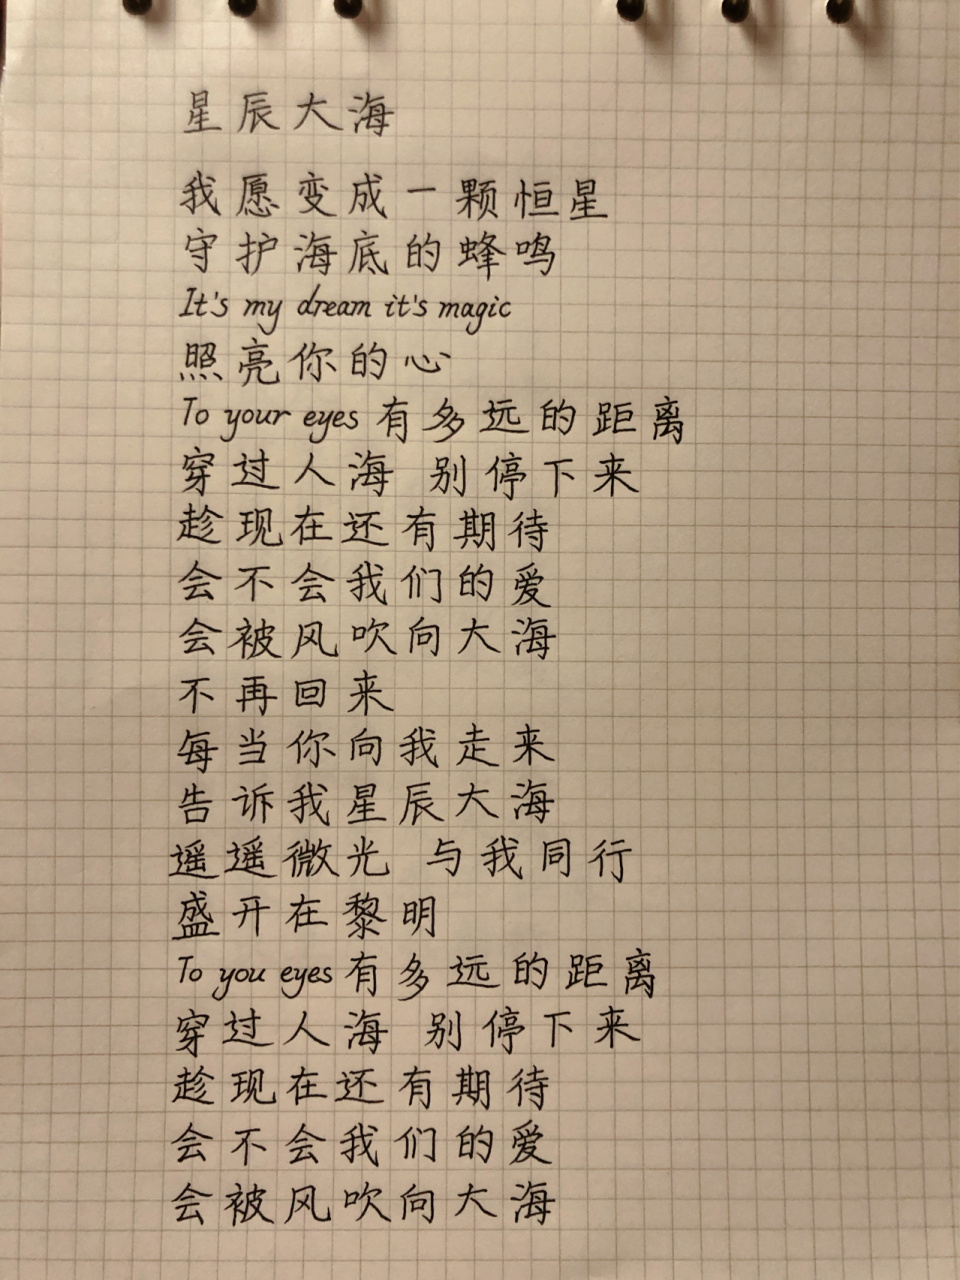 星辰大海
我愿变成一颗恒星
守护海底的蜂鸣
It's my dream it's magic
照亮你的心
To your eyes 有多远的距离
穿过人海 别停下来
趁现在还有期待
会不会我们的爱
会被风吹向大海
不再回来
每当你向我走来
告诉我星辰大海
遥遥微光 与我同行
盛开在黎明
To you eyes 有多远的距离
穿过人海 别停下来
趁现在还有期待
会不会我们的爱
会被风吹向大海